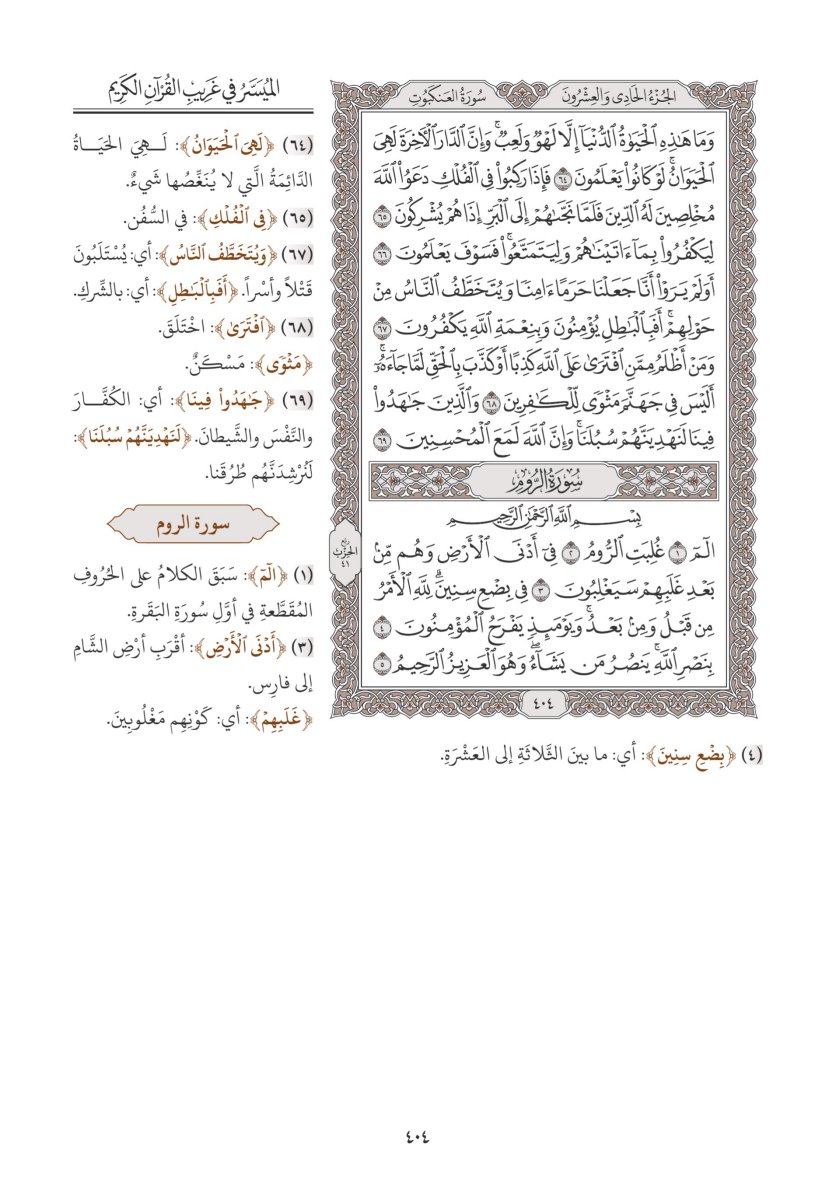 الجُزْءُ الحَادِي وَالعِشْرُونَ
سُورَةُ العَنكَبُوتِ
وَمَا هَٰذِهِ ٱلْحَيَوٰةُ ٱلدُّنْيَآ إِلَّا لَهْوٌ وَلَعِبٌ ۚ وَإِنَّ ٱلدَّارَ ٱلْءَاخِرَةَ لَهِىَ
ٱلْحَيَوَانُ ۚ لَوْ كَانُوا۟ يَعْلَمُونَ ٦٤ فَإِذَا رَكِبُوا۟ فِى ٱلْفُلْكِ دَعَوُا۟ ٱللَّهَ
مُخْلِصِينَ لَهُ ٱلدِّينَ فَلَمَّا نَجَّىٰهُمْ إِلَى ٱلْبَرِّ إِذَا هُمْ يُشْرِكُونَ ٦٥
لِيَكْفُرُوا۟ بِمَآ ءَاتَيْنَٰهُمْ وَلِيَتَمَتَّعُوا۟ ۖ فَسَوْفَ يَعْلَمُونَ ٦٦
أَوَلَمْ يَرَوْا۟ أَنَّا جَعَلْنَا حَرَمًا ءَامِنًا وَيُتَخَطَّفُ ٱلنَّاسُ مِنْ
حَوْلِهِمْ ۚ أَفَبِٱلْبَٰطِلِ يُؤْمِنُونَ وَبِنِعْمَةِ ٱللَّهِ يَكْفُرُونَ ٦٧
وَمَنْ أَظْلَمُ مِمَّنِ ٱفْتَرَىٰ عَلَى ٱللَّهِ كَذِبًا أَوْ كَذَّبَ بِٱلْحَقِّ لَمَّا جَآءَهُۥٓ ۚ
أَلَيْسَ فِى جَهَنَّمَ مَثْوًى لِّلْكَٰفِرِينَ ٦٨ وَٱلَّذِينَ جَٰهَدُوا۟
فِينَا لَنَهْدِيَنَّهُمْ سُبُلَنَا ۚ وَإِنَّ ٱللَّهَ لَمَعَ ٱلْمُحْسِنِينَ ٦٩
سُورَةُ الرُّومِ
بِسْمِ ٱللَّهِ ٱلرَّحْمَٰنِ ٱلرَّحِيمِ
الٓمٓ ١ غُلِبَتِ ٱلرُّومُ ٢ فِىٓ أَدْنَى ٱلْأَرْضِ وَهُم مِّنۢ
بَعْدِ غَلَبِهِمْ سَيَغْلِبُونَ ٣ فِى بِضْعِ سِنِينَ ۗ لِلَّهِ ٱلْأَمْرُ
مِن قَبْلُ وَمِنۢ بَعْدُ ۚ وَيَوْمَئِذٍ يَفْرَحُ ٱلْمُؤْمِنُونَ ٤
بِنَصْرِ ٱللَّهِ ۚ يَنصُرُ مَن يَشَآءُ ۖ وَهُوَ ٱلْعَزِيزُ ٱلرَّحِيمُ ٥
ربع
الحزب
٤١
٤٠٤
المُيَسَّرُ في غَرِيبِ القُرْآنِ الكَرِيمِ
(٦٤) ﴿لَهِىَ ٱلْحَيَوَانُ﴾: لَـهِيَ الحَيَـاةُ
الدَّائِمَةُ الَّتي لا يُنَغِّصُها شَيءٌ.
(٦٥) ﴿فِى ٱلْفُلْكِ﴾: في السُّفُن.
(٦٧) ﴿وَيُتَخَطَّفُ ٱلنَّاسُ﴾: أي: يُسْتَلَبُونَ
قَتْلاً وأَسْراً. ﴿أَفَبِٱلْبَٰطِلِ﴾: أي: بالشِّركِ.
(٦٨) ﴿ٱفْتَرَىٰ﴾: اخْتَلَقَ.
﴿مَثْوًى﴾: مَسْكَنٌ.
(٦٩) ﴿جَٰهَدُوا۟ فِينَا﴾: أي: الكُفَّـارَ
والنَّفْسَ والشَّيطانَ. ﴿لَنَهْدِيَنَّهُمْ سُبُلَنَا﴾:
لَنُرْشِدَنَّهُم طُرُقَنا.
سورة الروم
(١) ﴿الٓمٓ﴾: سَبَقَ الكلامُ على الحُرُوفِ
المُقَطَّعةِ في أوَّلِ سُورَةِ البَقَرةِ.
(٣) ﴿أَدْنَى ٱلْأَرْضِ﴾: أقْرَبِ أرْضِ الشَّامِ
إلى فارِس.
﴿غَلَبِهِمْ﴾: أي: كَوْنِهِم مَغْلُوبِينَ.
(٤) ﴿بِضْعِ سِنِينَ﴾: أي: ما بينَ الثَّلاثَةِ إلى العَشْرَةِ.
٤٠٤